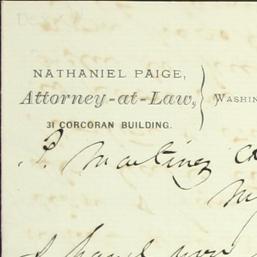 NATHANIEL PAIGE,
Attorney-at-Law,
31 CORCORAN BUILDING.
WASHIN
J. Martinez
My
I have your